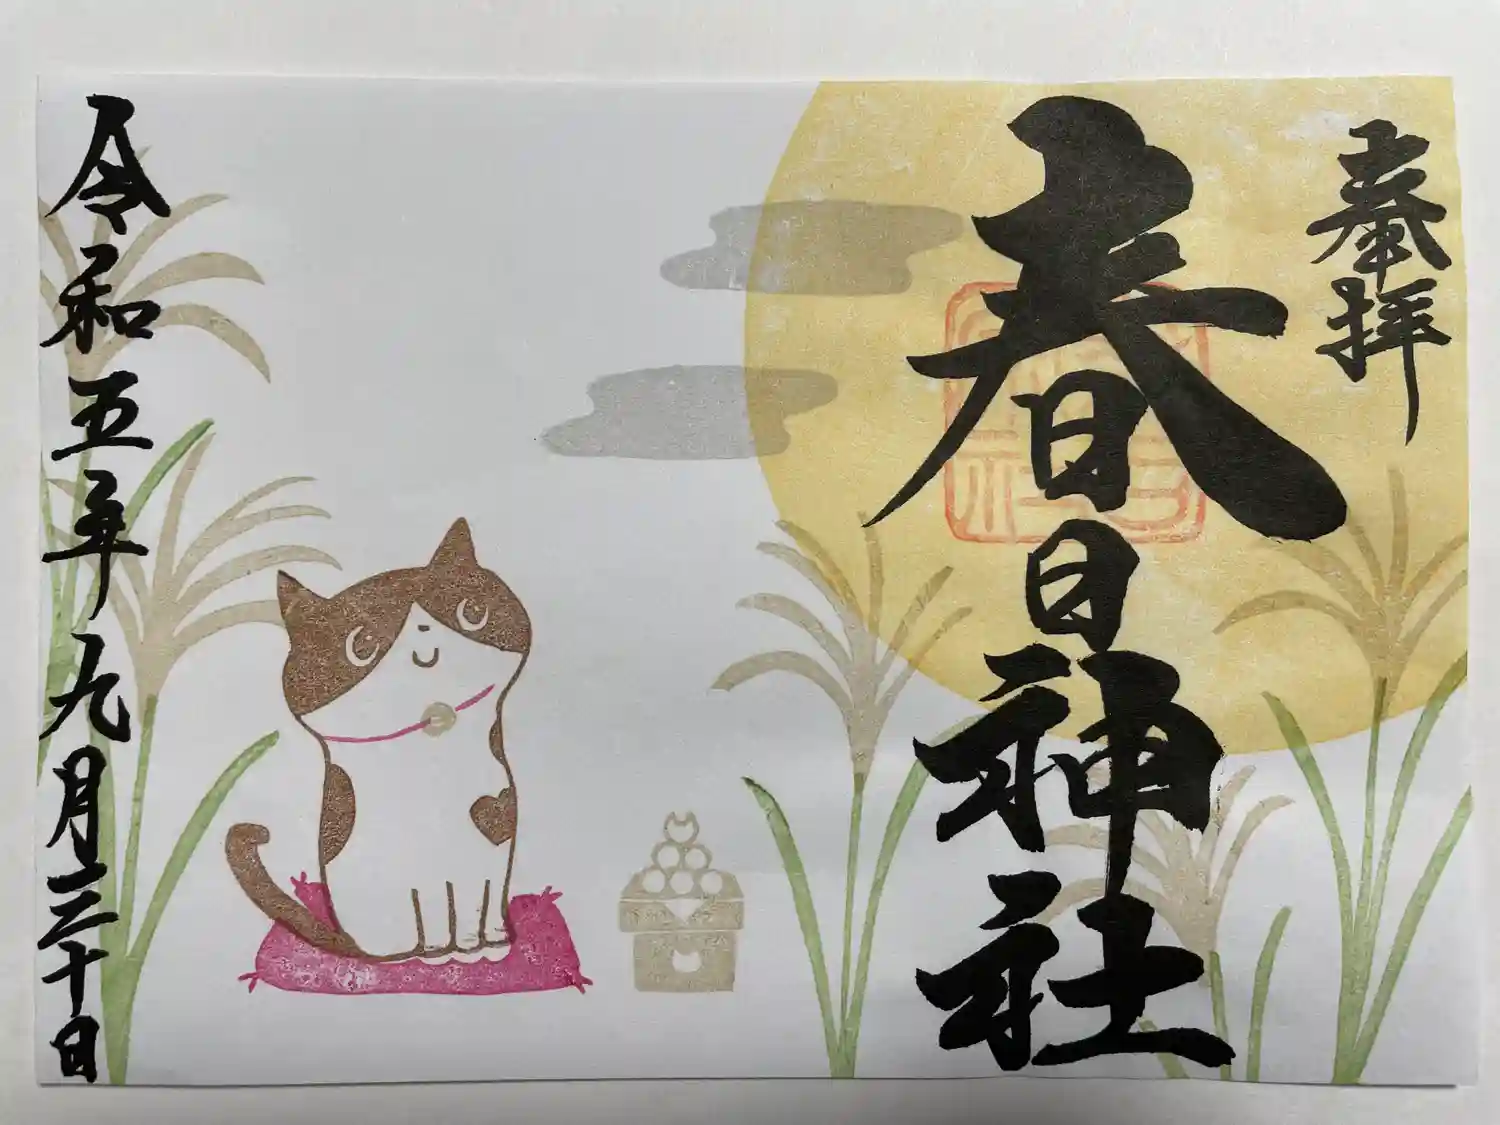 奉拝
春日神社
令和五年九月三十日